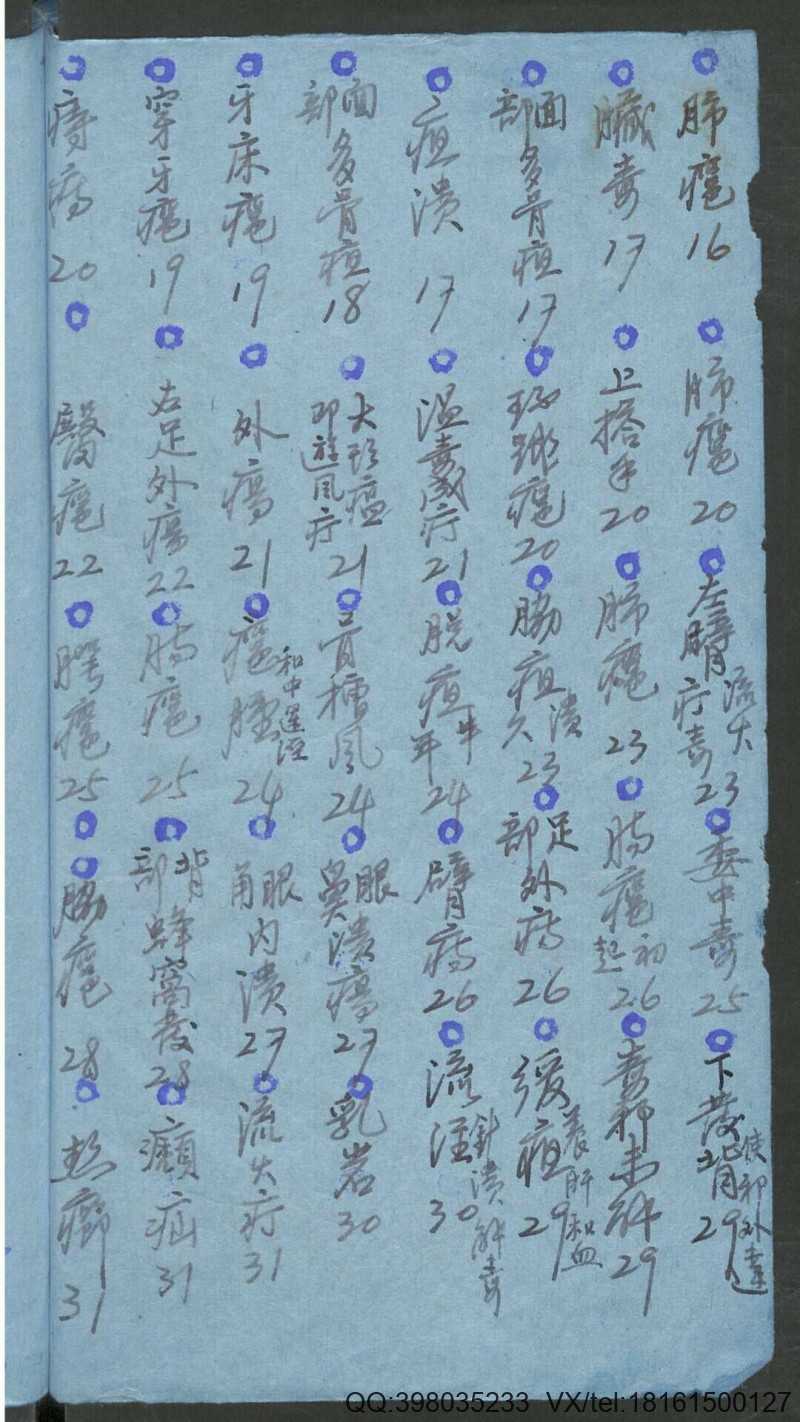 肺癰 16
臟毒 17
面部多骨疽 17
疽潰 17
面部多骨疽 18
牙床癰 19
穿牙癰 19
痔瘍 20
肺癰 20
上搭手 20
環跳癰 20
溫毒成疔 21
大頭瘟 即游風疔 21
外瘍 21
右足外瘍 22
臀癰 22
左臂疔毒 流火 23
肺癰 23
脇疽久潰 23
脫疽 24
骨槽風 24
癰腫 和中運涇 24
腸癰 25
腭癰 25
委中毒 25
腸癰初起 26
足部外瘍 26
臂瘍 26
眼鼻潰瘍 27
眼角內潰 27
背部蜂窩發 28
脇癰 28
下發背 使邪外達 29
毒邪未解 29
緩疽 養肝和血 29
流注 針潰解毒 30
乳岩 30
流火疔 31
癩疝 31
熱癤 31
QQ:398035233 VX/tel:18161500127